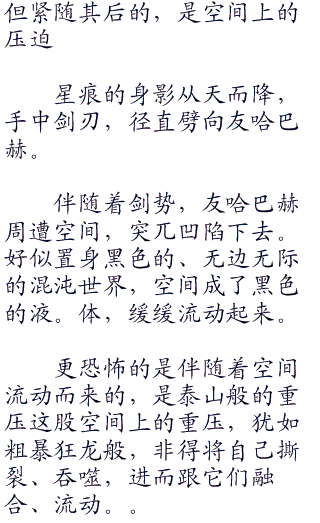 但紧随其后的，是空间上的
压迫
星痕的身影从天而降，
手中剑刃，径直劈向友哈巴
赫。
伴随着剑势，友哈巴赫
周遭空间，突兀凹陷下去。
好似置身黑色的、无边无际
的混沌世界，空间成了黑色
的液。体，缓缓流动起来。
更恐怖的是伴随着空间
流动而来的，是泰山般的重
压这股空间上的重压，犹如
粗暴狂龙般，非得将自己撕
裂、吞噬，进而跟它们融
合、流动。。